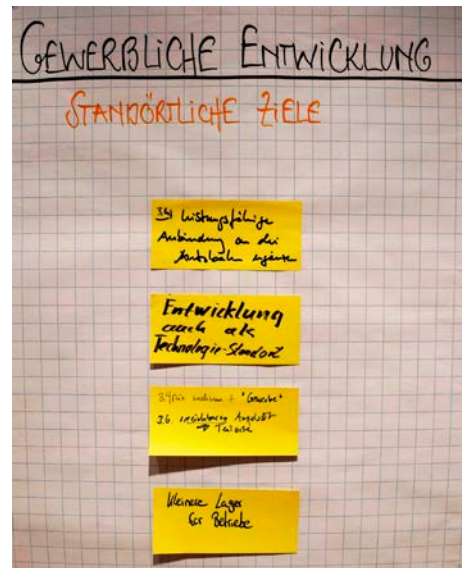 GEWERBLICHE ENTWICKLUNG
STANDÖRTLICHE ZIELE
leistungsfähige
Anbindung an die
ergänzen
Entwicklung
auch als
Technologie-Standort
+ "Gewerbe"
3.6.
Kleinere Lager
für Betriebe